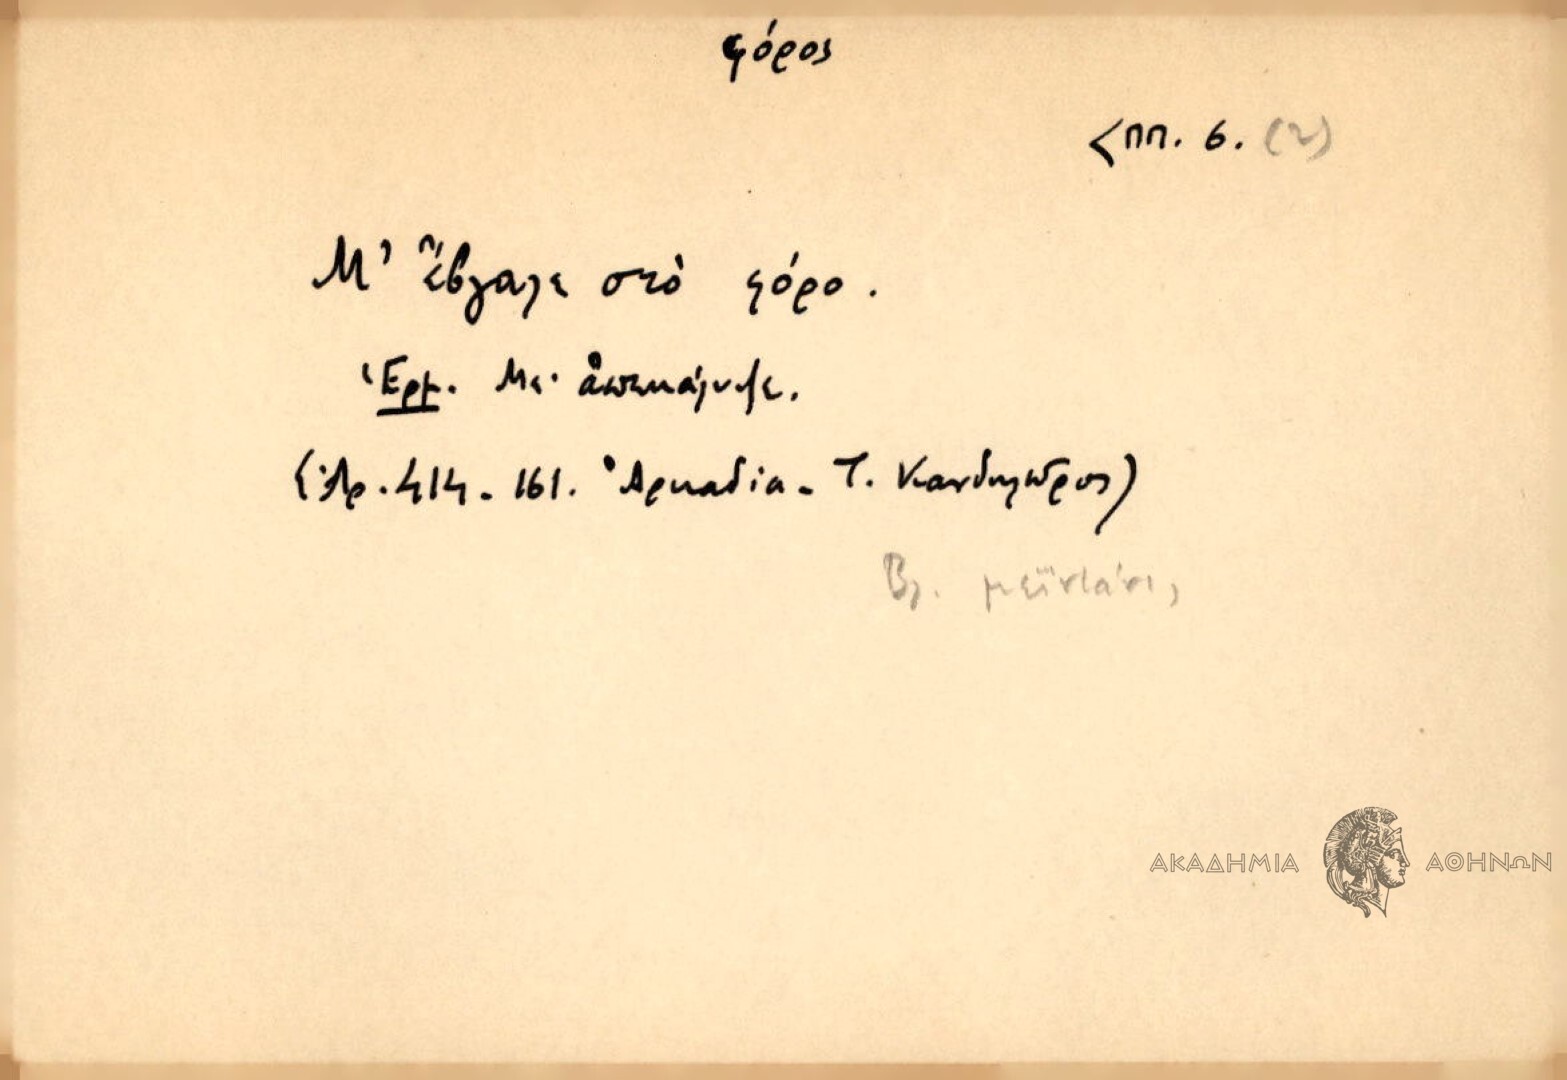 φόρος
<ππ. 6. (2)
Μ' ἔβγαλε στὸ φόρο.
Ἑρμ. Με ἀπεκάλυψε.
(Ἀρ. 414 - 161. Ἀρκαδία - Τ. Κανδηλῶρος)
Βλ. μεϊντάνι,
ΑΚΑΔΗΜΙΑ ΑΘΗΝΩΝ